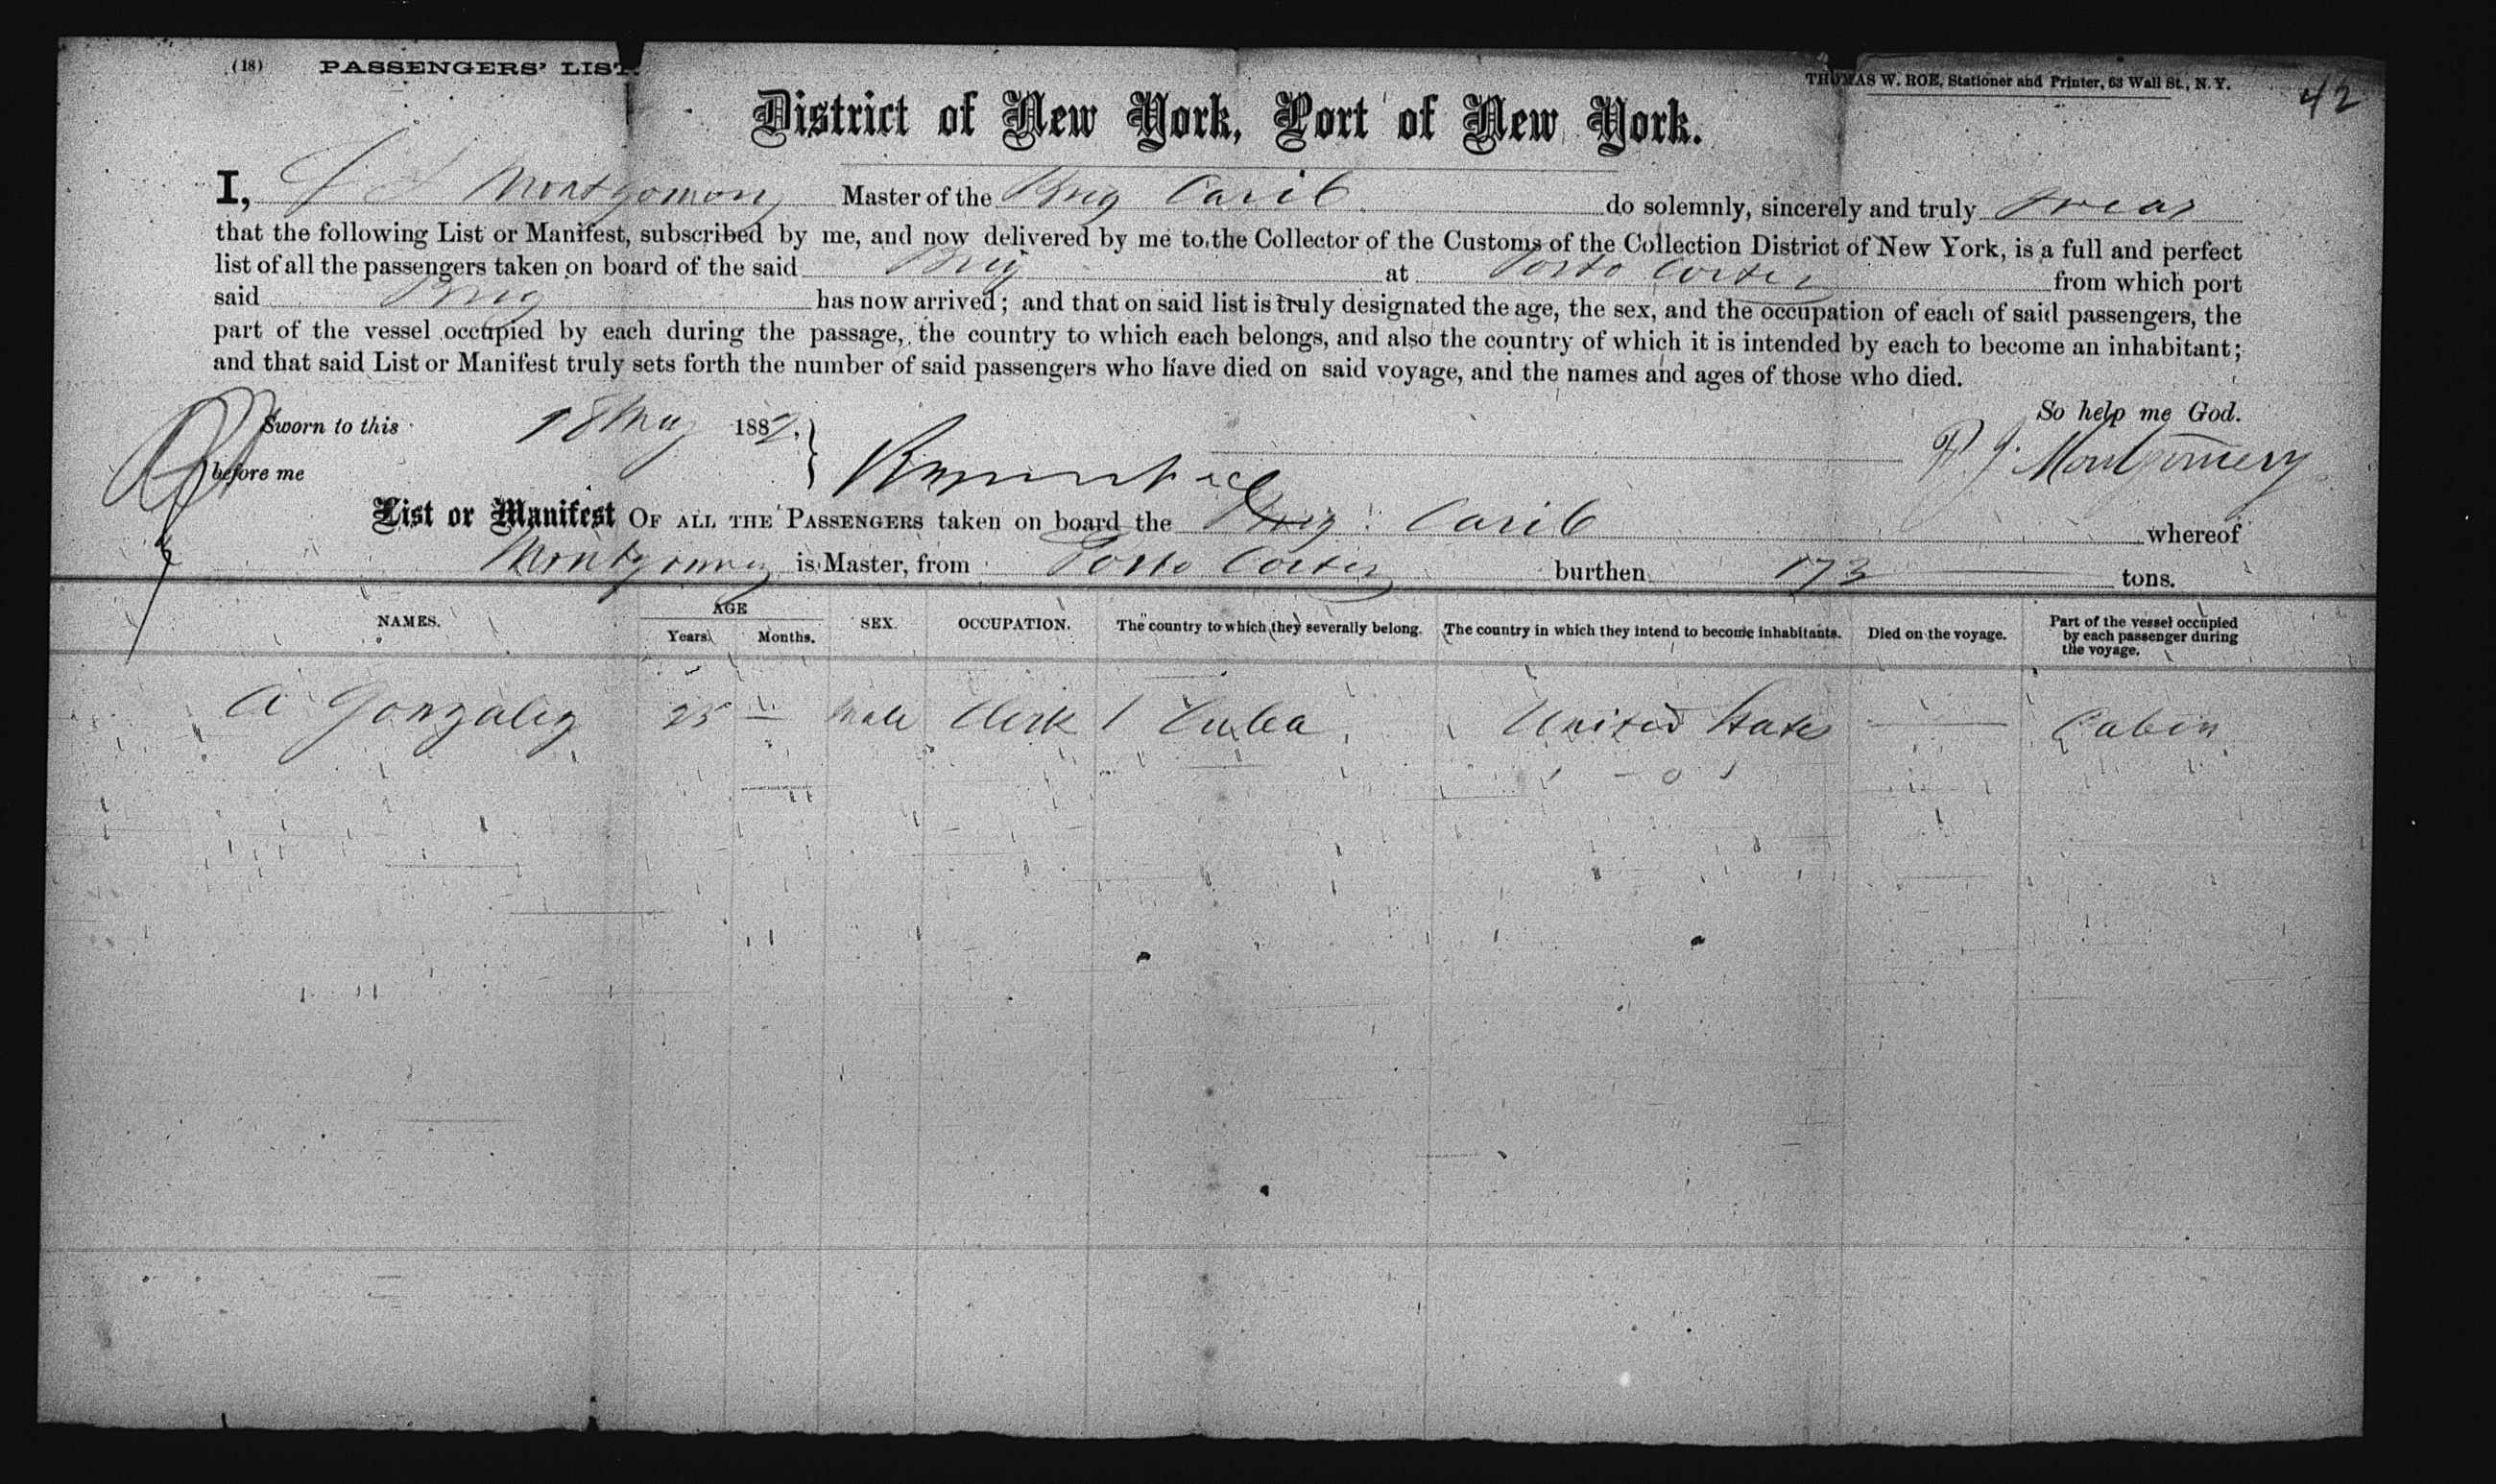 (18) PASSENGERS' LIST.
THOMAS W. ROE, Stationer and Printer, 63 Wall St., N.Y.
42
District of New York, Port of New York.
I, Montgomery Master of the Brig Carib do solemnly, sincerely and truly swear
that the following List or Manifest, subscribed by me, and now delivered by me to the Collector of the Customs of the Collection District of New York, is a full and perfect
list of all the passengers taken on board of the said Brig at Porto Cortez from which port
said Brig has now arrived; and that on said list is truly designated the age, the sex, and the occupation of each of said passengers, the
part of the vessel occupied by each during the passage, the country to which each belongs, and also the country of which it is intended by each to become an inhabitant;
and that said List or Manifest truly sets forth the number of said passengers who have died on said voyage, and the names and ages of those who died.
So help me God.
Sworn to this 18 May 1882.
J. Montgomery
before me
List or Manifest OF ALL THE PASSENGERS taken on board the Brig Carib whereof
Montgomery is Master, from Porto Cortez burthen 173 tons.
NAMES. AGE Years. Months. SEX. OCCUPATION. The country to which they severally belong. The country in which they intend to become inhabitants. Died on the voyage. Part of the vessel occupied by each passenger during the voyage.
A Gonzalez 25 — Male Clerk / Cuba United States — Cabin